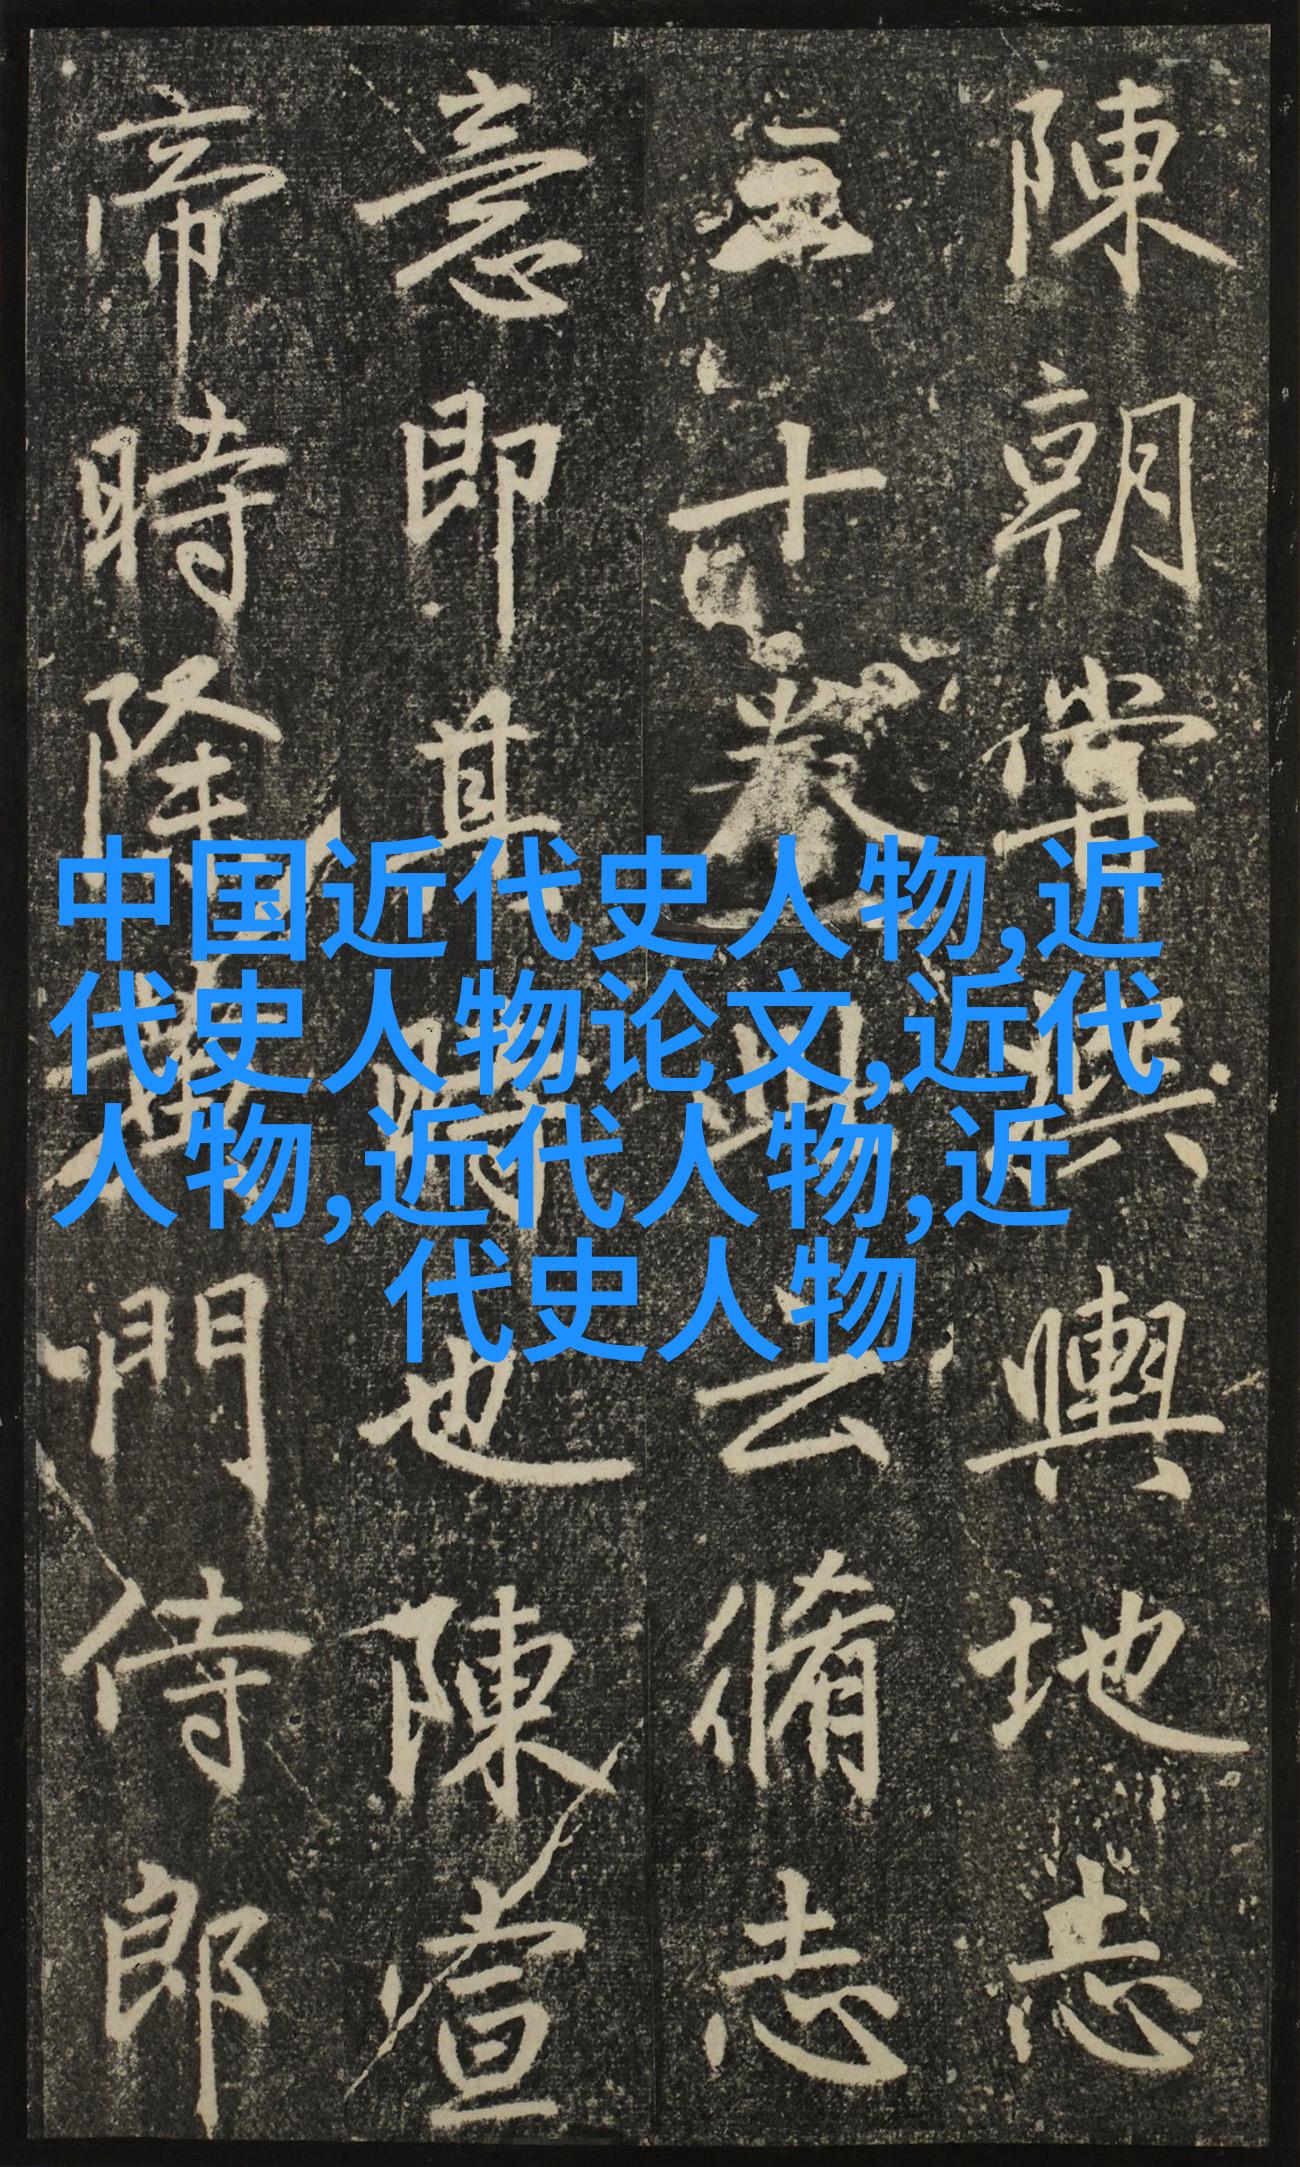 陳朝嘗輿地志
三十卷此云脩志
意即其時也陳宣
帝時黃門侍郎
中国近代史人物,近
代史人物论文,近代
人物,近代人物,近
代史人物